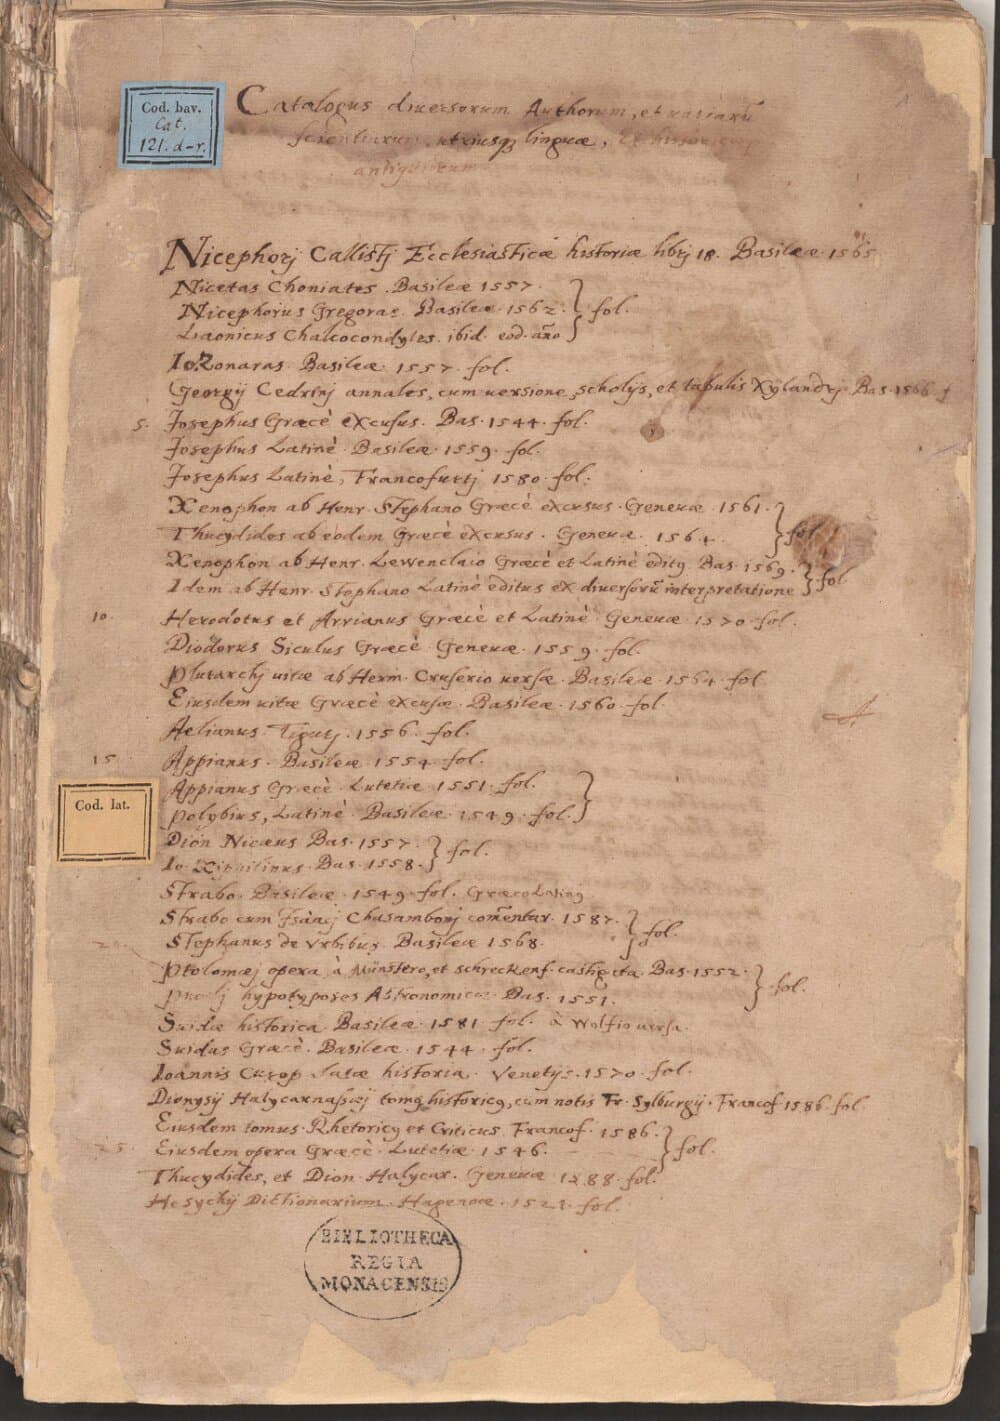 Cod. bav.
Cat.
121. d-r.
Catalogus diuersorum Authorum, et uariarũ
scientiarum utriusq linguae, Et historicis
Nicephorj Callistj Ecclesiasticae historiae librj 18. Basileae 1565
Nicetas Choniates. Basileae 1557.
Nicephorus Gregoras. Basileae 1562. } fol.
Laonicus Chalcocondyles. ibid. eod. año
Io. Zonaras Basileae 1557. fol.
Georgij Cedrinj annales, cum uersione, scholijs, et tabulis Xylandrj Bas. 1566 f
5. Josephus Graecè excusus. Bas. 1544. fol.
Josephus Latinè. Basileae. 1559. fol.
Josephus Latinè, Francofurtj 1580. fol.
Xenophon ab Henr. Stephano Graecè excusus. Geneuae. 1561.
Thucydides ab eodem Graecè excusus. Geneuae. 1564. } fol.
Xenophon ab Henr. Lewenclaio Graecè et Latinè editq. Bas. 1569.
Idem ab Henr. Stephano Latinè editus ex diuersorũ interpretatione } fol.
10. Herodotus et Arrianus Graecè et Latinè Geneuae 1570 fol.
Diodorus Siculus Graecè Geneuae. 1559. fol.
Plutarchj uitae ab Herm. Cruserio uersae. Basileae. 1564. fol
Eiusdem uitae Graecè excusae. Basileae. 1560. fol.
Aelianus. Tigurj. 1556. fol.
15 Appianus. Basileae. 1554. fol.
Appianus Graecè Lutetiae 1551. fol.
Polybius, Latinè. Basileae. 1549. fol. }
Cod. lat.
Dion Nicaeus Bas. 1557.
Io. Xiphilinus. Bas. 1558. } fol.
Strabo. Basileae. 1549. fol. GraecoLatinq
Strabo cum Isaacj Chasambonj comẽntar. 1587.
20. Stephanus de Vrbibus Basileae 1568. } fol.
Ptolomaej opera à Münstero, et schreckenf. castigata. Bas. 1552.
Proclj hypotyposes Astronomicae. Bas. 1551. } fol.
Suidae historica Basileae. 1581 fol. à Wolfio uersa.
Suidas Graecè. Basileae. 1544. fol.
Ioannis Curop historia. Venetijs. 1570. fol.
Dionysij Halycarnassaej tomq historicq, cum notis Fr. Sylburgij. Francof. 1586. fol.
Eiusdem tomus Rhetoricq et Criticus Francof. 1586.
25. Eiusdem opera Graecè. Lutetiae. 1546. } fol.
Thucydides, et Dion. Halycar. Geneuae 1588. fol.
Hesychij Dictionarium. Hagenoae. 1521. fol.
BIBLIOTHECA
REGIA
MONACENSIS